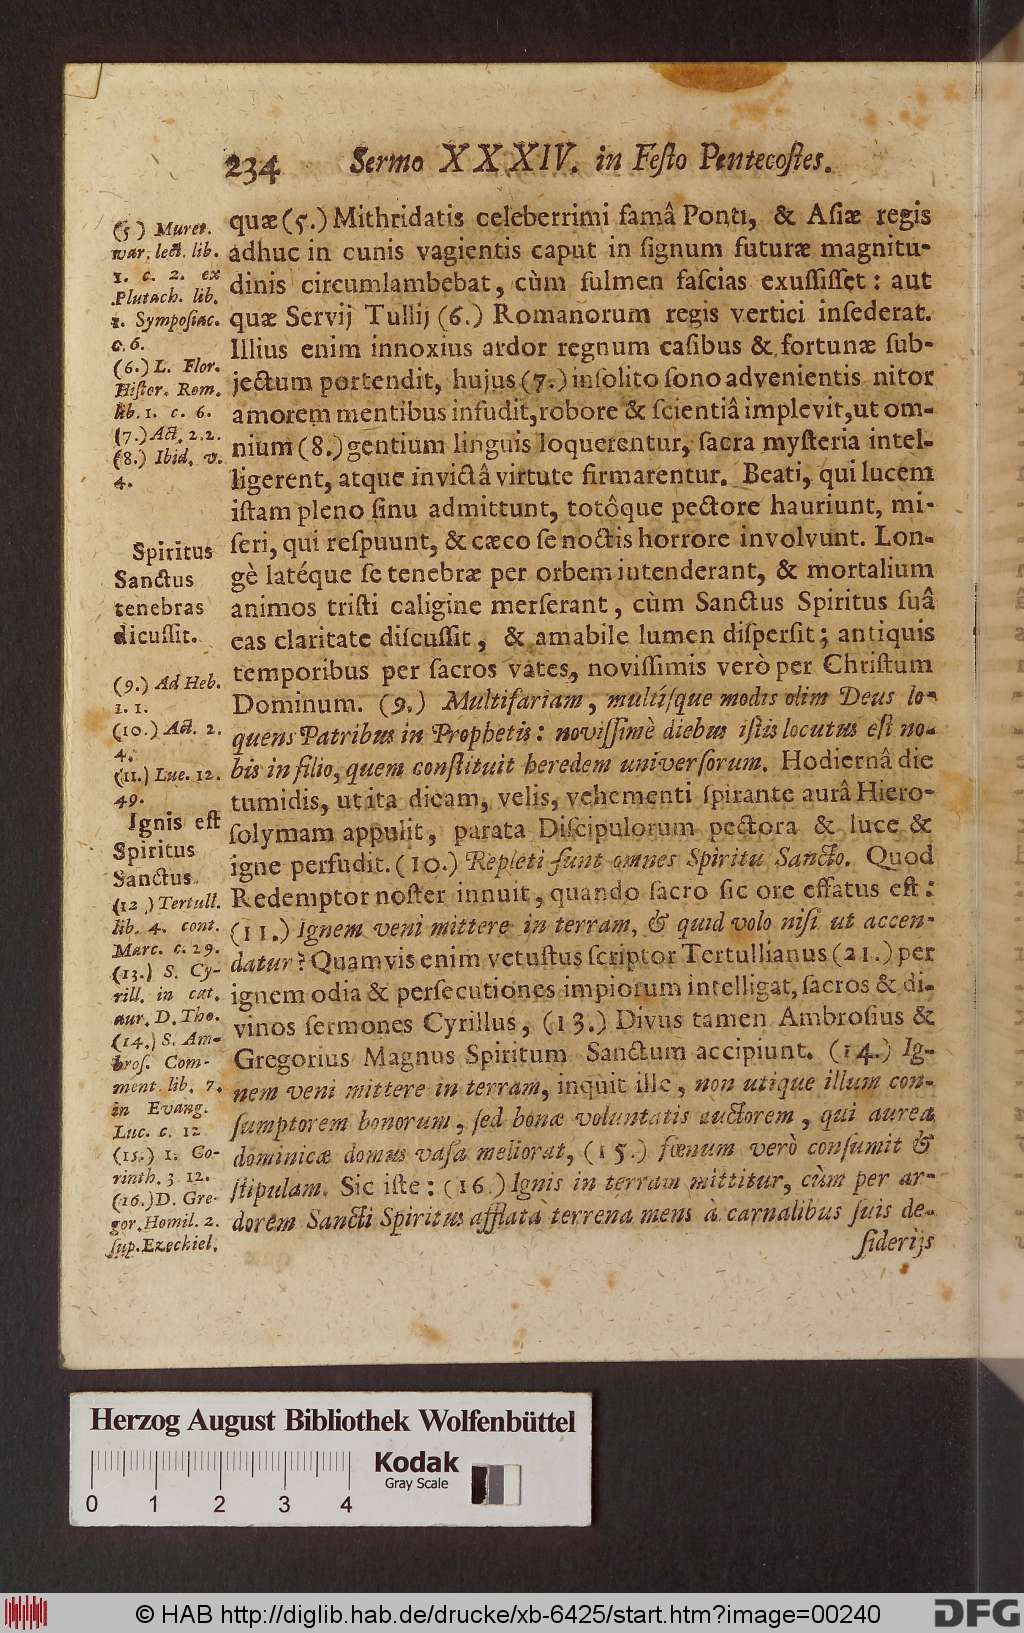 234 Sermo XXXIV. in Feſto Pentecoſtes.
quæ (5.) Mithridatis celeberrimi famâ Ponti, & Aſiæ regis
adhuc in cunis vagientis caput in ſignum futuræ magnitu-
dinis circumlambebat, cùm fulmen faſcias exuſſiſſet: aut
quæ Servij Tullij (6.) Romanorum regis vertici inſederat.
Illius enim innoxius ardor regnum caſibus & fortunæ ſub-
jectum portendit, hujus (7.) inſolito ſono advenientis nitor
amorem mentibus inſudit, robore & ſcientiâ implevit, ut om-
nium (8.) gentium linguis loquerentur, ſacra myſteria intel-
ligerent, atque invictâ virtute firmarentur. Beati, qui lucem
iſtam pleno ſinu admittunt, totôque pectore hauriunt, mi-
ſeri, qui reſpuunt, & cæco ſe noctis horrore involvunt. Lon-
gè latéque ſe tenebræ per orbem intenderant, & mortalium
animos triſti caligine merſerant, cùm Sanctus Spiritus ſuâ
eas claritate diſcuſſit, & amabile lumen diſperſit; antiquis
temporibus per ſacros vates, noviſſimis verò per Chriſtum
Dominum. (9.) Multifariam, multíſque modis olim Deus lo-
quens Patribus in Prophetis: noviſſimè diebus iſtis locutus eſt no-
bis in filio, quem conſtituit heredem univerſorum. Hodiernâ die
tumidis, ut ita dicam, velis, vehementi ſpirante aurâ Hiero-
ſolymam appulit, parata Diſcipulorum pectora & luce &
igne perfudit. (10.) Repleti ſunt omnes Spiritu Sancto. Quod
Redemptor noſter innuit, quando ſacro ſic ore effatus eſt:
(11.) Ignem veni mittere in terram, & quid volo niſi ut accen-
datur? Quamvis enim vetuſtus ſcriptor Tertullianus (21.) per
ignem odia & perſecutiones impiorum intelligat, ſacros & di-
vinos ſermones Cyrillus, (13.) Divus tamen Ambroſius &
Gregorius Magnus Spiritum Sanctum accipiunt. (14.) Ig-
nem veni mittere in terram, inquit ille, non utique illum con-
ſumptorem bonorum, ſed bonæ voluntatis auctorem, qui aurea
dominicæ domus vaſa meliorat, (15.) fœnum verò conſumit &
ſtipulam. Sic iſte: (16.) Ignis in terram mittitur, cùm per ar-
dorem Sancti Spiritus afflata terrena mens à carnalibus ſuis de-
ſiderijs
(5) Muret.
var. lect. lib.
1. c. 2. ex
Plutach. lib.
1. Sympoſiac.
c. 6.
(6.) L. Flor.
Hiſtor. Rom.
lib. 1. c. 6.
(7.) Act. 2. 2.
(8.) Ibid. v.
4.
Spiritus
Sanctus
tenebras
dicuſſit.
(9.) Ad Heb.
1. 1.
(10.) Act. 2.
4.
(11.) Luc. 12.
49.
Ignis eſt
Spiritus
Sanctus.
(12.) Tertull.
lib. 4. cont.
Marc. c. 29.
(13.) S. Cy-
rill. in cat.
aur. D. Tho.
(14.) S. Am-
broſ. Com-
ment. lib. 7.
in Evang.
Luc. c. 12
(15.) 1. Co-
rinth. 3. 12.
(16.) D. Gre-
gor. Homil. 2.
ſup. Ezechiel.
Herzog August Bibliothek Wolfenbüttel
Kodak
Gray Scale
0 1 2 3 4
© HAB http://diglib.hab.de/drucke/xb-6425/start.htm?image=00240
DFG